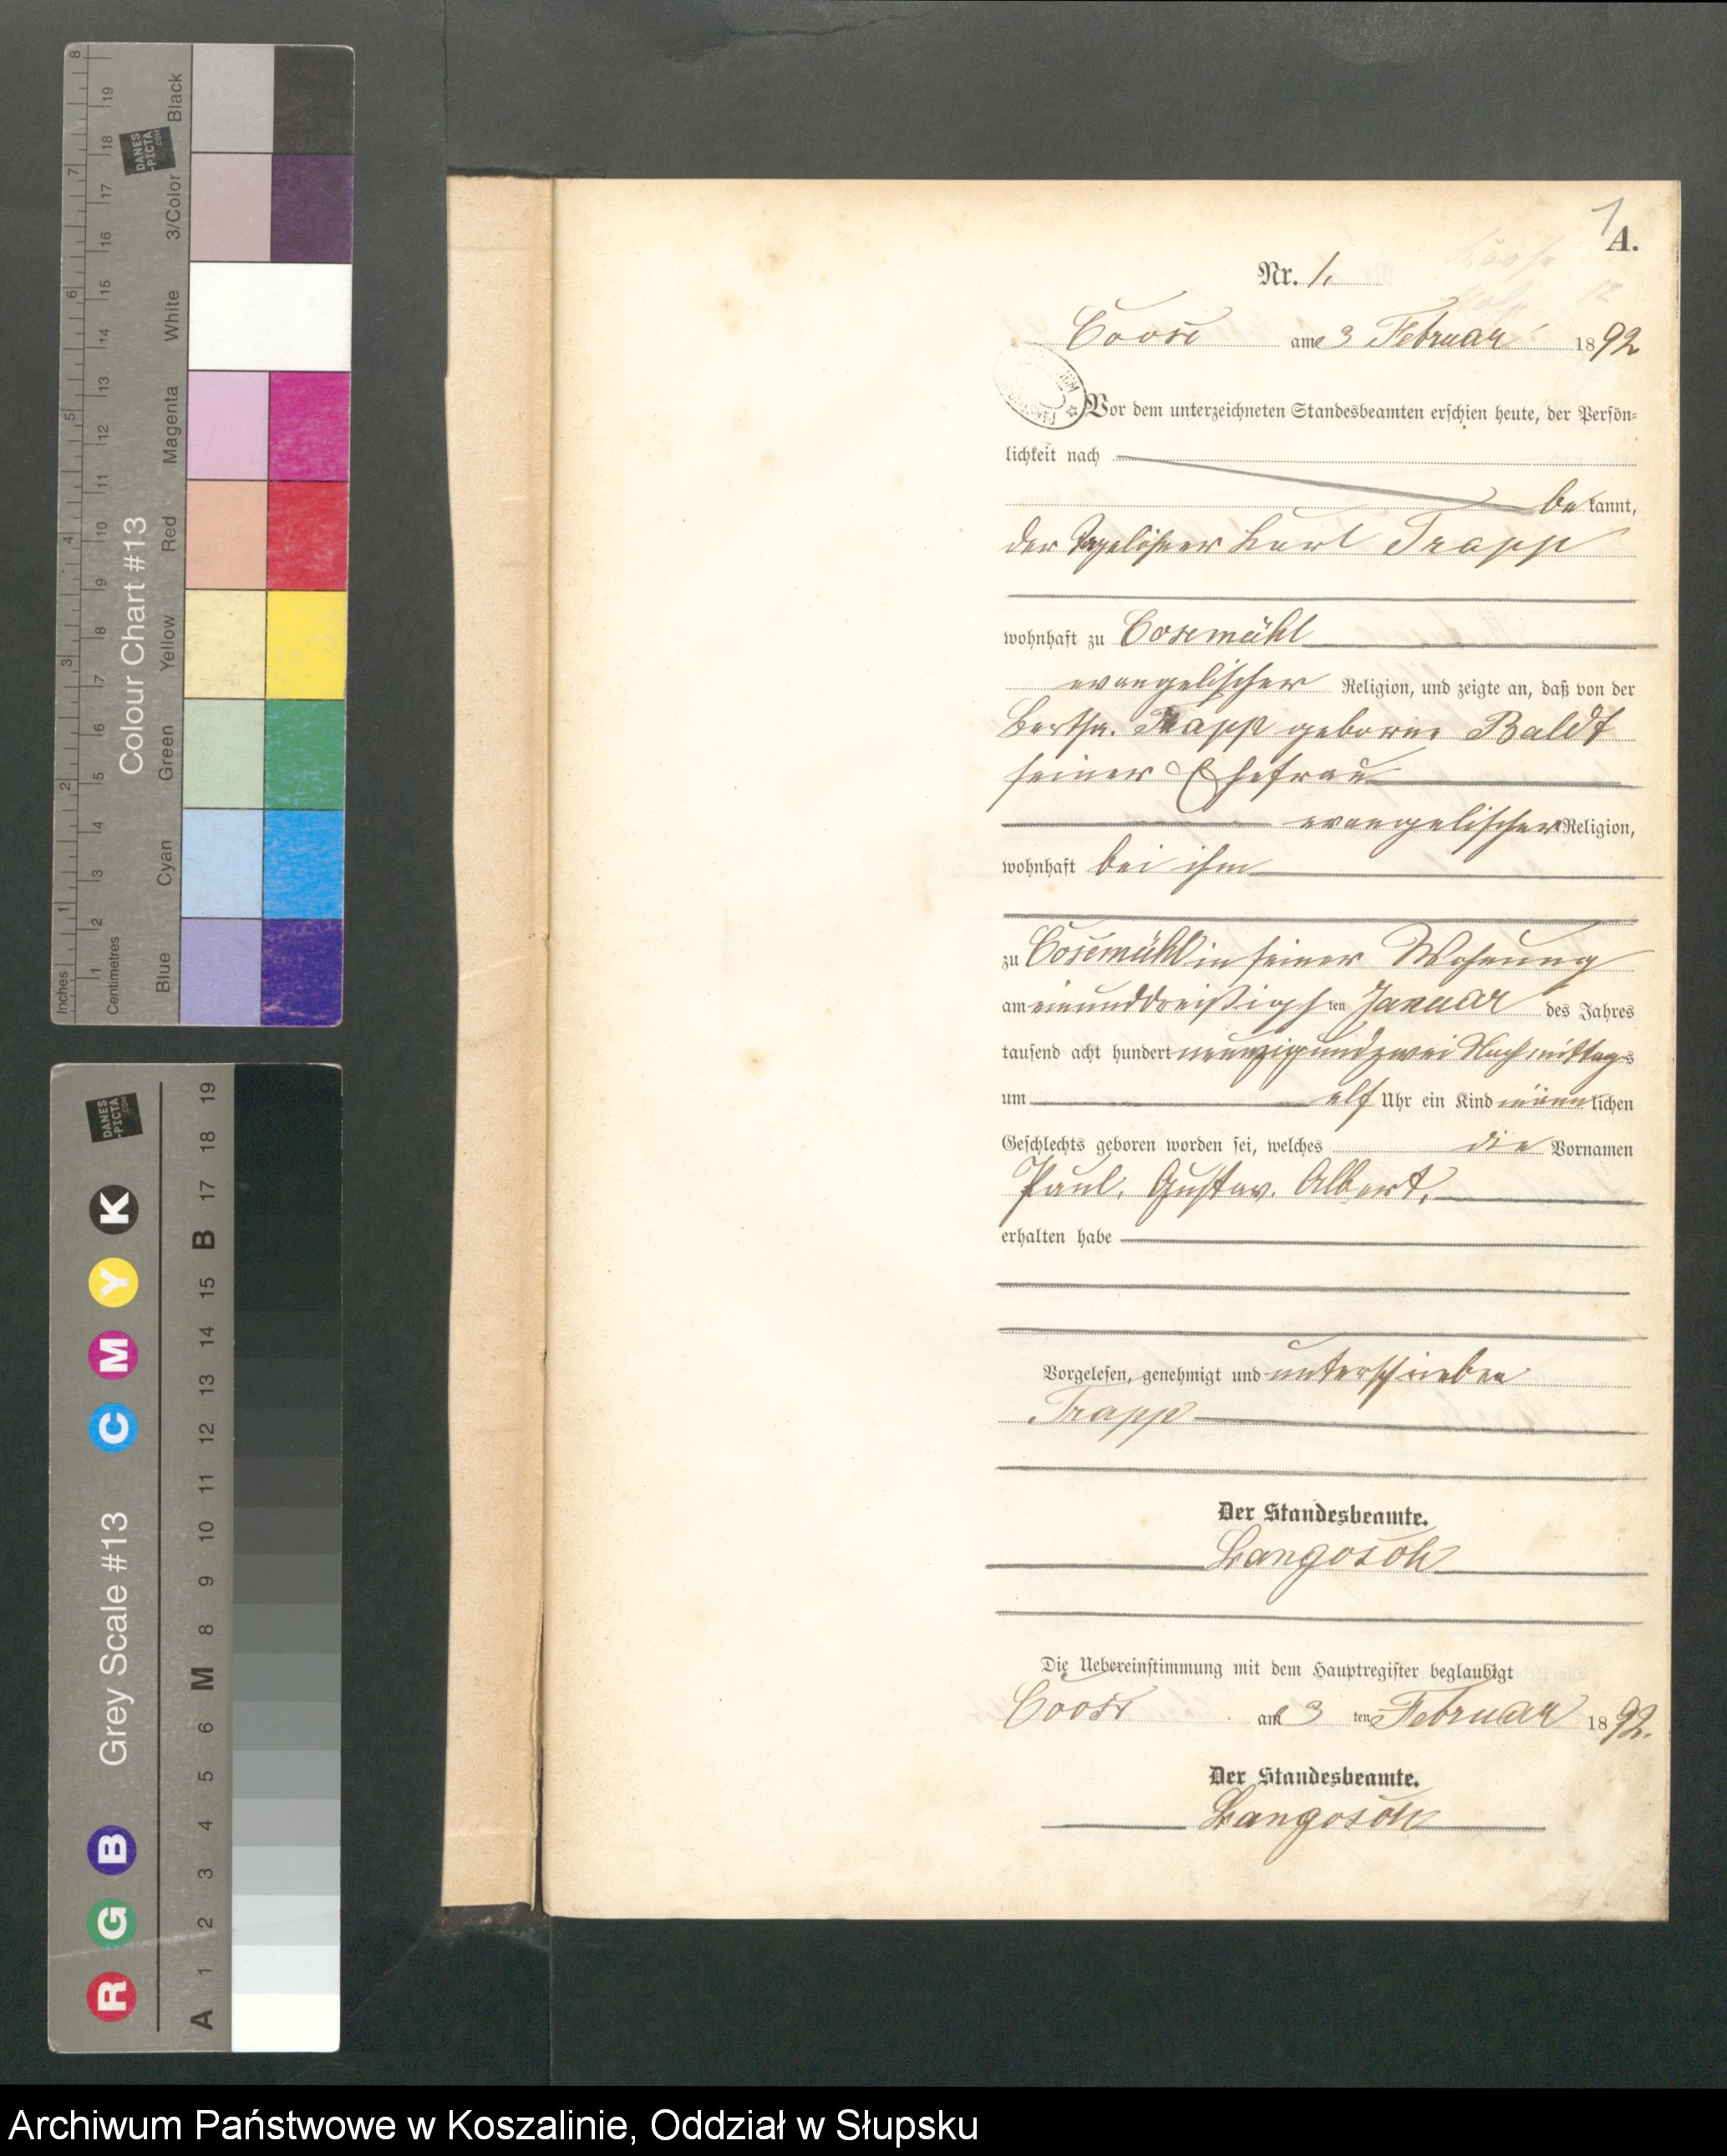 1
A.
Nr. 1.
Coose am 3 Februar 1892
Vor dem unterzeichneten Standesbeamten erschien heute, der Persön-
lichkeit nach
be kannt,
der Tagelöhner Karl Trapp
wohnhaft zu Cosemühl
evangelischer Religion, und zeigte an, daß von der
Bertha. Trapp geborne Baldt
seiner Ehefrau
evangelischer Religion,
wohnhaft bei ihm
zu Cosemühl in seiner Wohnung
am einunddreißigs ten Januar des Jahres
tausend acht hundert neunzig und zwei Nachmittags
um elf Uhr ein Kind männlichen
Geschlechts geboren worden sei, welches die Vornamen
Paul. Gustav. Albert.
erhalten habe
Vorgelesen, genehmigt und unterschrieben
Trapp
Der Standesbeamte.
Langosch
Die Uebereinstimmung mit dem Hauptregister beglaubigt
Coose am 3 ten Februar 1892.
Der Standesbeamte.
Langosch
Inches
1 2 3 4 5 6 7 8
Centimetres
1 2 3 4 5 6 7 8 9 10 11 12 13 14 15 16 17 18 19
Colour Chart #13
Blue Cyan Green Yellow Red Magenta White 3/Color Black
DANES
-PICTA
.COM
Grey Scale #13
R G B C M Y K
A 1 2 3 4 5 6 M 8 9 10 11 12 13 14 15 B 17 18 19
DANES
-PICTA
.COM
Archiwum Państwowe w Koszalinie, Oddział w Słupsku